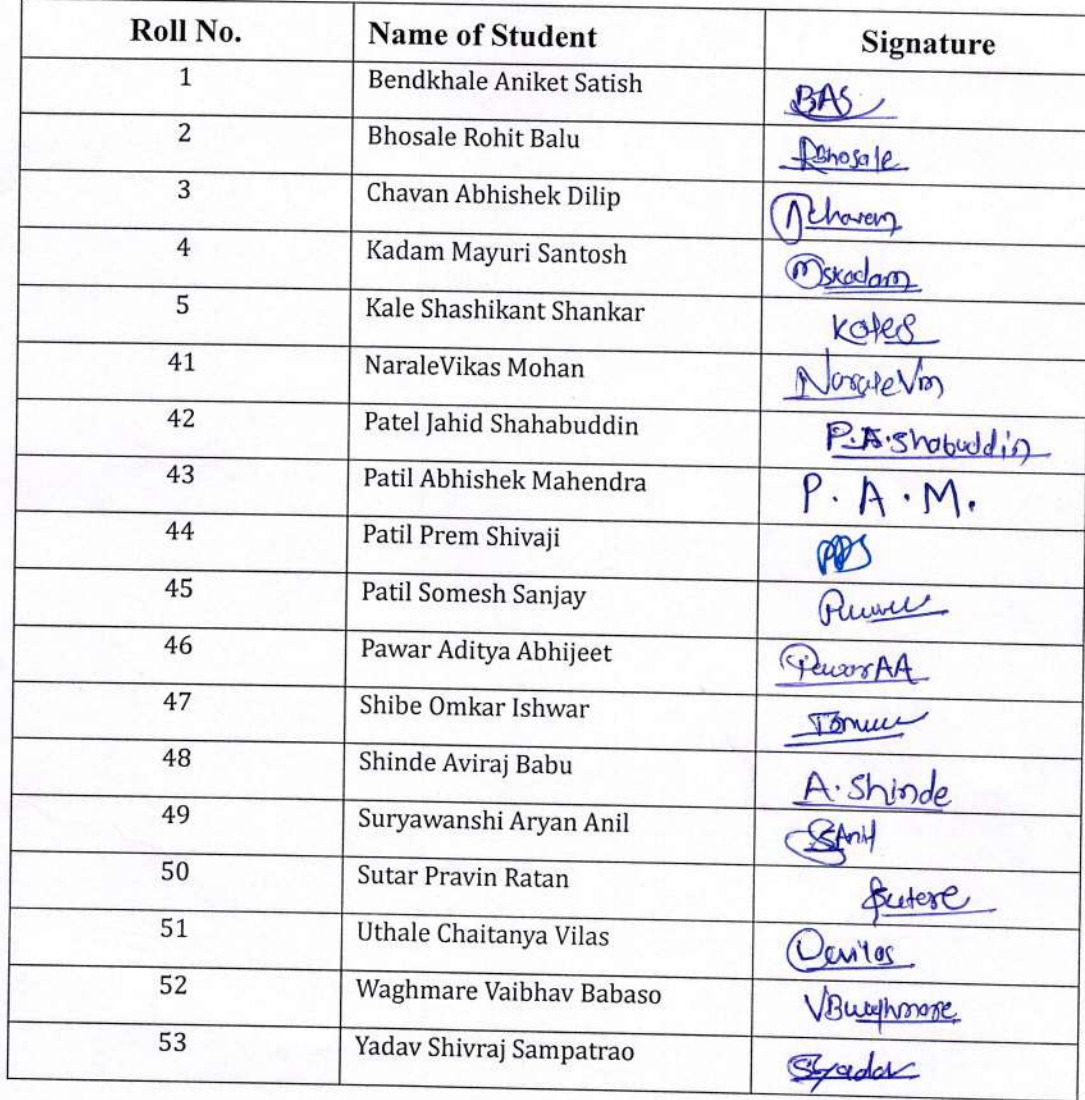 Roll No. Name of Student Signature
1 Bendkhale Aniket Satish BAS
2 Bhosale Rohit Balu RBhosale
3 Chavan Abhishek Dilip AChavan
4 Kadam Mayuri Santosh MSKadam
5 Kale Shashikant Shankar KaleS
41 NaraleVikas Mohan NaraleVm
42 Patel Jahid Shahabuddin P.A.Shabuddin
43 Patil Abhishek Mahendra P. A. M.
44 Patil Prem Shivaji PPS
45 Patil Somesh Sanjay
46 Pawar Aditya Abhijeet PawarAA
47 Shibe Omkar Ishwar
48 Shinde Aviraj Babu A. Shinde
49 Suryawanshi Aryan Anil SAnil
50 Sutar Pravin Ratan
51 Uthale Chaitanya Vilas
52 Waghmare Vaibhav Babaso VBWaghmare
53 Yadav Shivraj Sampatrao SYadav